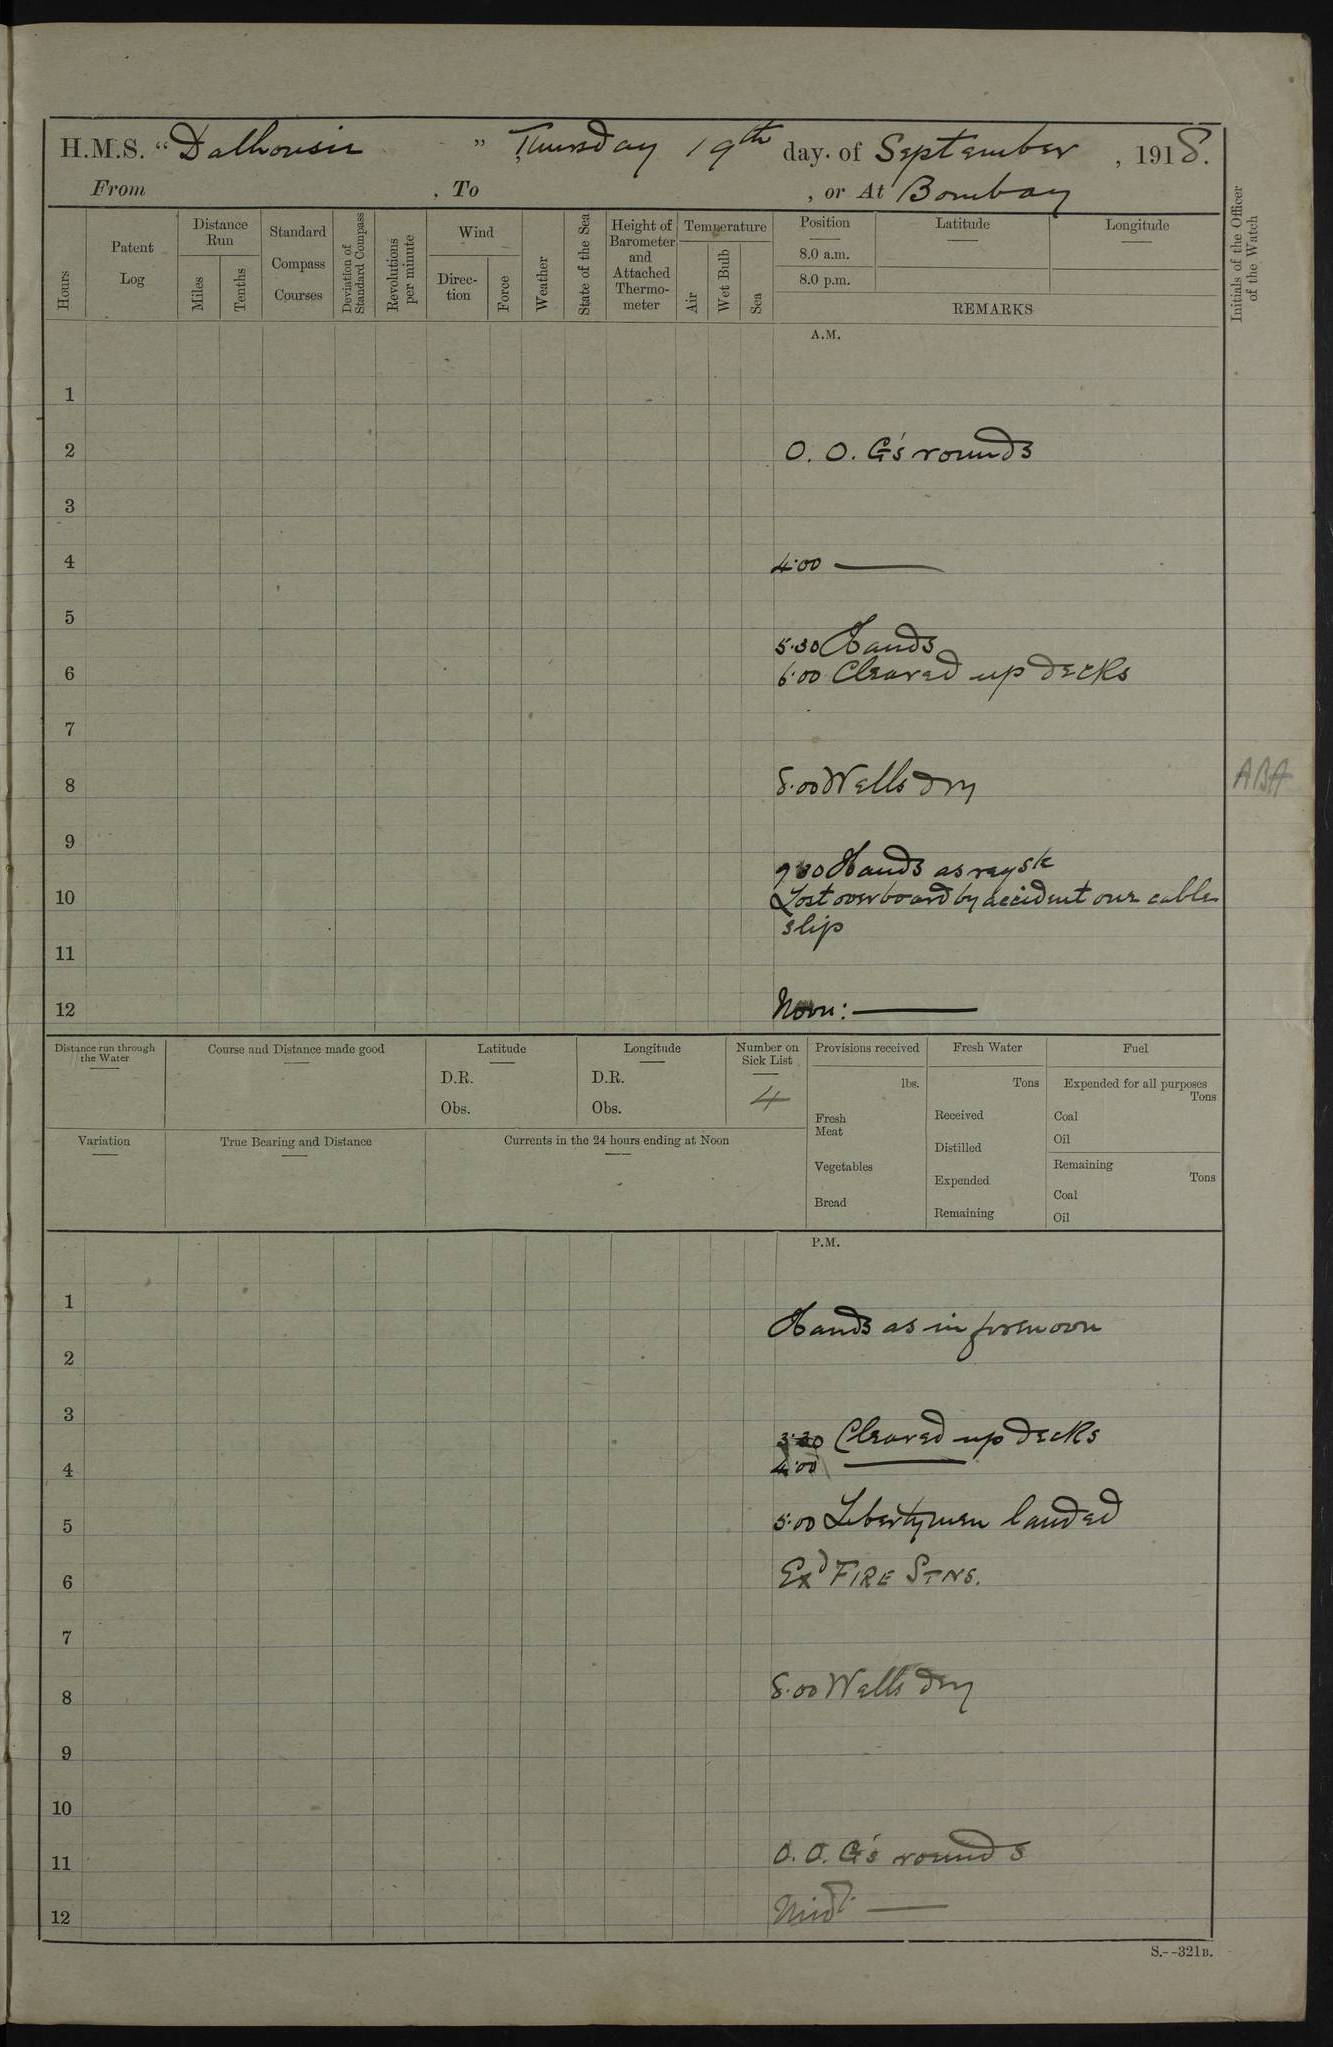 H.M.S. "Dalhousie" Thursday 19th day of September, 1918.
From , To , or At Bombay
Hours
Patent Log
Distance Run
Miles
Tenths
Standard Compass Courses
Deviation of Standard Compass
Revolutions per minute
Wind
Direc-tion
Force
Weather
State of the Sea
Height of Barometer and Attached Thermo-meter
Temperature
Air
Wet Bulb
Sea
Position
Latitude
Longitude
8.0 a.m.
8.0 p.m.
REMARKS
Initials of the Officer of the Watch
A.M.
1
2 O. O. G's rounds
3
4 4.00 ———
5
5.30 Hands
6 6.00 Cleared up decks
7
8 8.00 Wells dry ABA
9
9.30 Hands as reqste
10 Lost overboard by accident one cable
slip
11
12 Noon: ———
Distance run through the Water
Course and Distance made good
Latitude
D.R.
Obs.
Longitude
D.R.
Obs.
Number on Sick List
4
Provisions received
lbs.
Fresh Meat
Vegetables
Bread
Fresh Water
Tons
Received
Distilled
Expended
Remaining
Fuel
Expended for all purposes
Tons
Coal
Oil
Remaining
Tons
Coal
Oil
Variation
True Bearing and Distance
Currents in the 24 hours ending at Noon
P.M.
1
Hands as in forenoon
2
3
3.30 Cleared up decks
4 4.00 ———
5 5.00 Libertymen landed
6 Exd FIRE STNS.
7
8 8.00 Wells dry
9
10
11 O. O. G's rounds
12 Midt. ———
S.--321B.